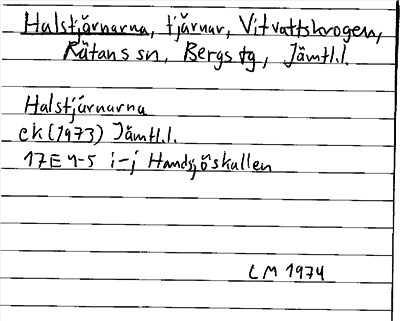 Halstjärnarna, tjärnar, Vitvattskrogen,
Rätans sn, Bergs tg, Jämtl.l.
Halstjärnarna
ek (1973) Jämtl.l.
17E 4-5 i-j Handsjöskallen
LM 1974